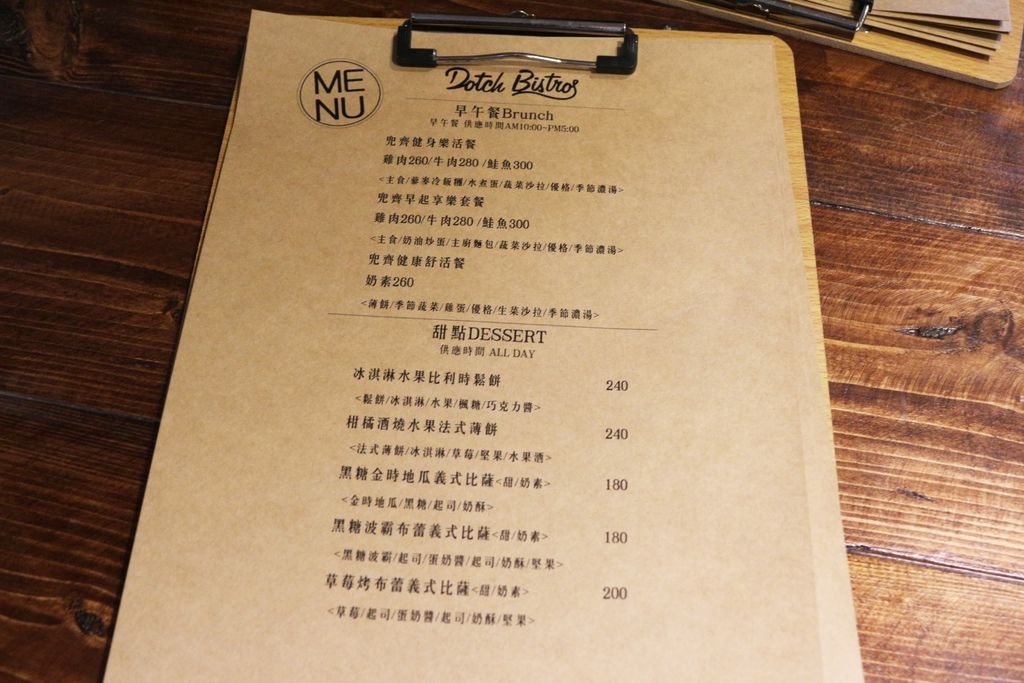 ME
NU
Dotch Bistros
早午餐Brunch
早午餐 供應時間AM10:00~PM5:00
兜齊健身樂活餐
雞肉260/牛肉280/鮭魚300
<主食/藜麥冷飯糰/水煮蛋/蔬菜沙拉/優格/季節濃湯>
兜齊早起享樂套餐
雞肉260/牛肉280/鮭魚300
<主食/奶油炒蛋/主廚麵包/蔬菜沙拉/優格/季節濃湯>
兜齊健康舒活餐
奶素260
<薄餅/季節蔬菜/雞蛋/優格/生菜沙拉/季節濃湯>
甜點DESSERT
供應時間 ALL DAY
冰淇淋水果比利時鬆餅 240
<鬆餅/冰淇淋/水果/楓糖/巧克力醬>
柑橘酒燒水果法式薄餅 240
<法式薄餅/冰淇淋/草莓/堅果/水果酒>
黑糖金時地瓜義式比薩<甜/奶素> 180
<金時地瓜/黑糖/起司/奶酥>
黑糖波霸布蕾義式比薩<甜/奶素> 180
<黑糖波霸/起司/蛋奶醬/起司/奶酥/堅果>
草莓烤布蕾義式比薩<甜/奶素> 200
<草莓/起司/蛋奶醬/起司/奶酥/堅果>